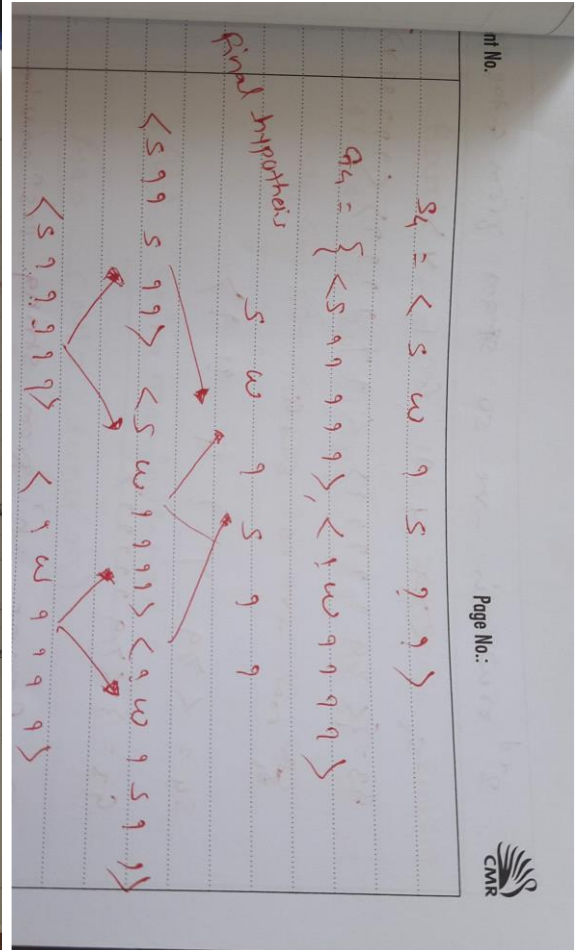 nt No.
Page No.:
CMR
S4 = < S W ? S ? ? >
G4 = { < S ? ? ? ? ? >, < ? W ? ? ? ? > }
Final hypothesis
S W ? S ? ?
< S ? ? S ? ? > < S W ? ? ? ? > < ? W ? S ? ? >
< S ? ? ? ? ? > < ? W ? ? ? ? >